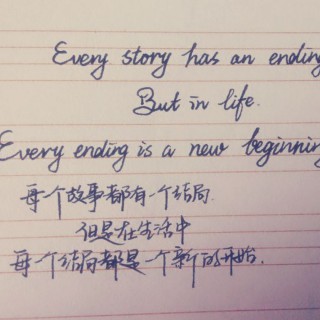 Every story has an ending
But in life.
Every ending is a new beginning
每个故事都有一个结局.
但是在生活中
每个结局都是一个新的开始.